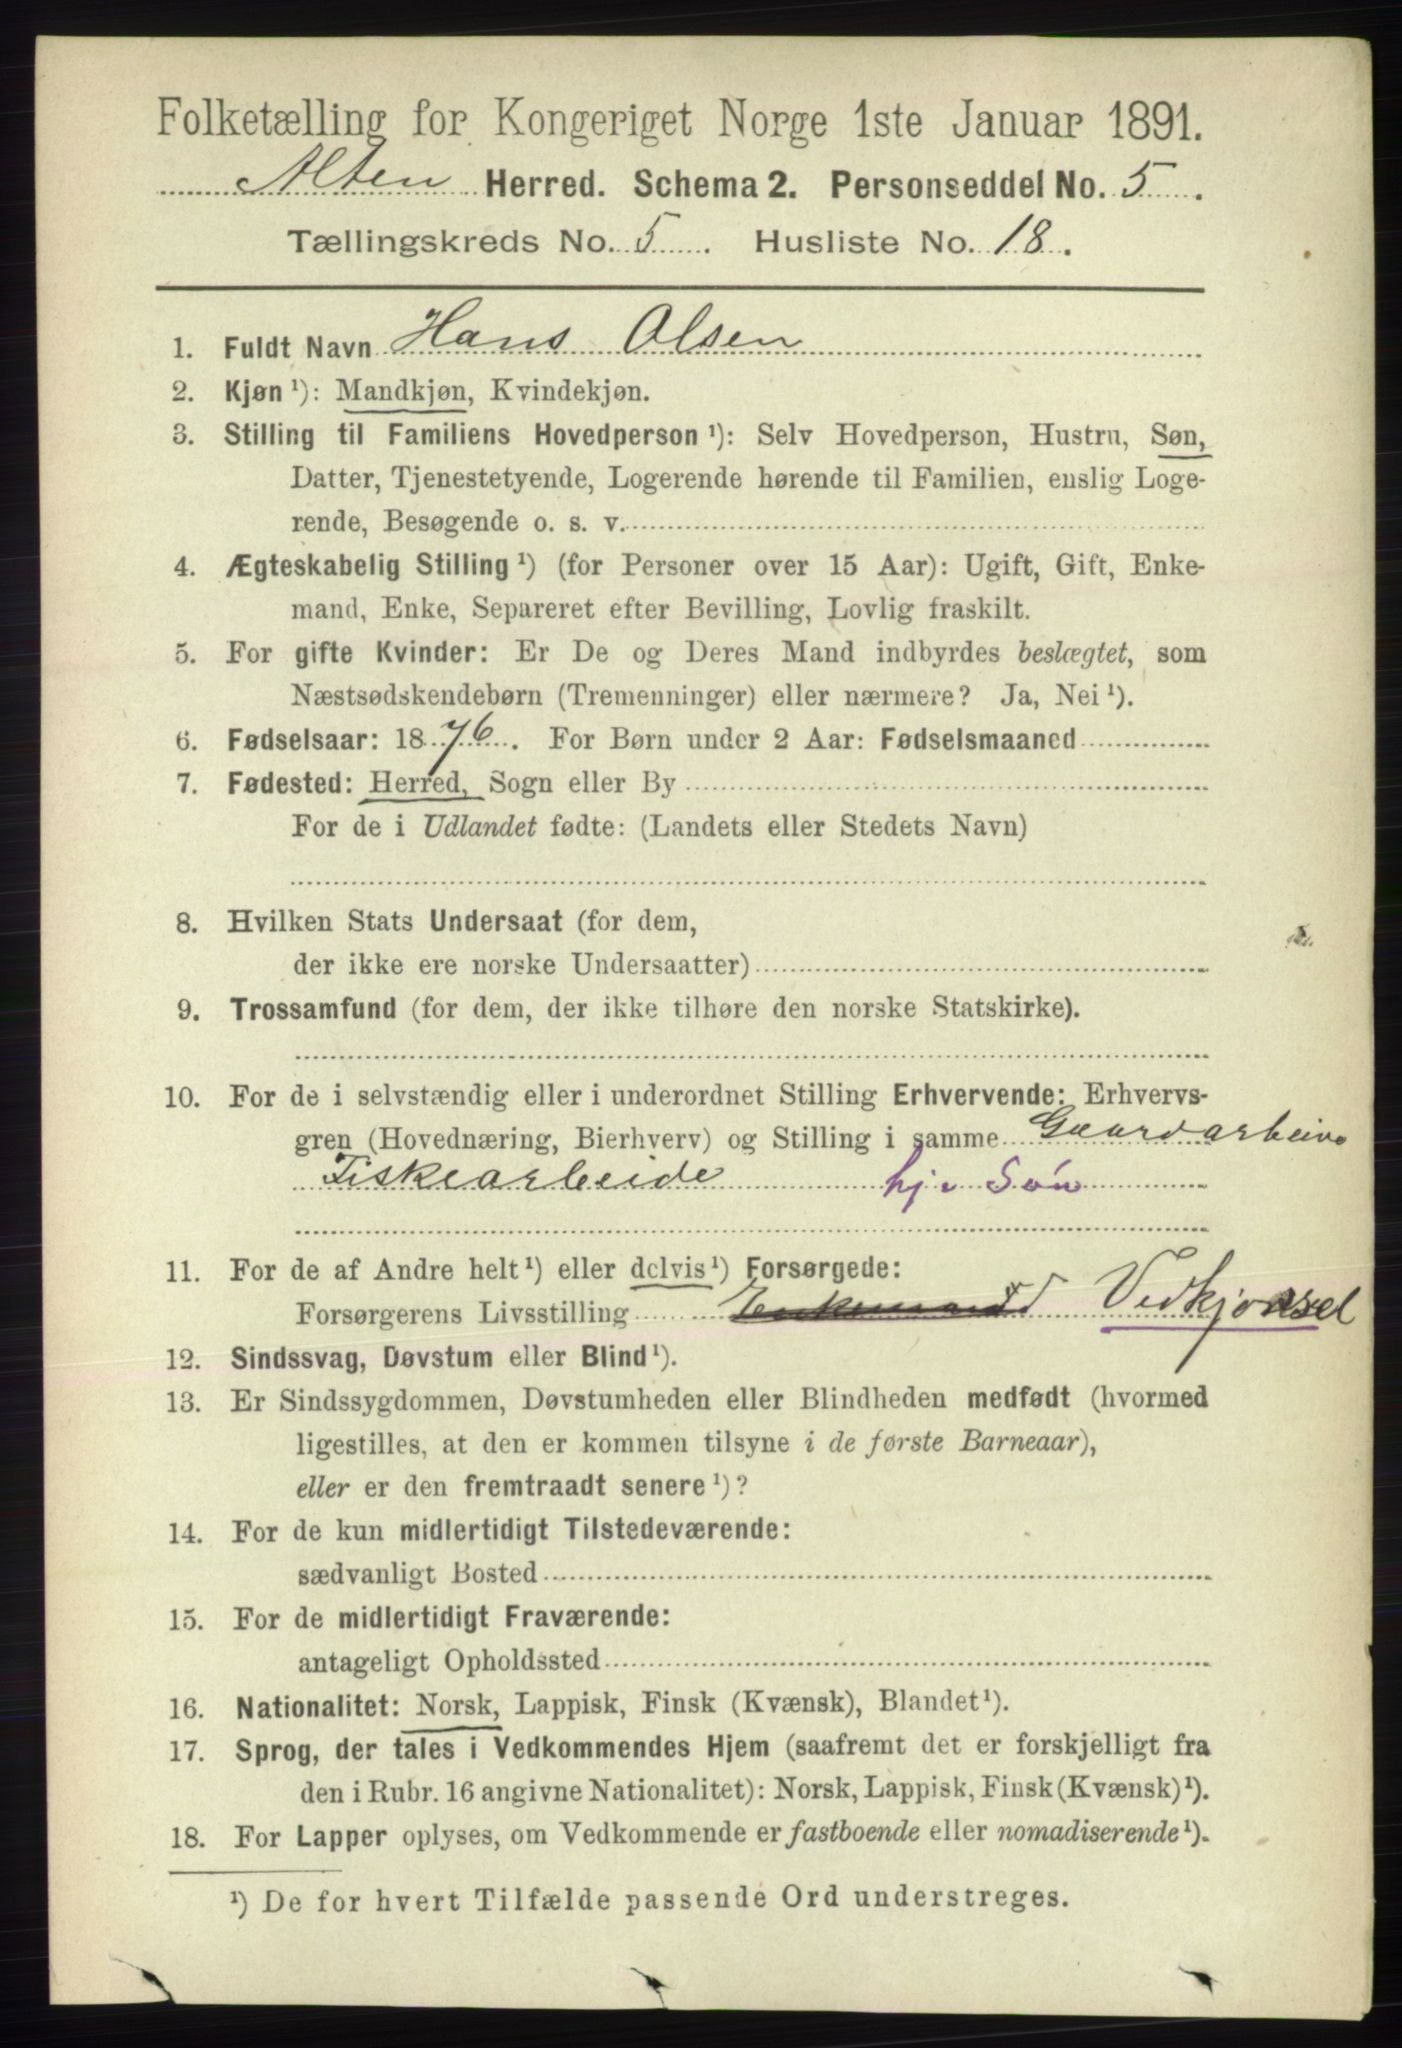 Folketælling for Kongeriget Norge 1ste Januar 1891.
Alten Herred. Schema 2. Personseddel No. 5.
Tællingskreds No. 5. Husliste No. 18.
1. Fuldt Navn Hans Olsen
2. Kjøn ¹): Mandkjøn, Kvindekjøn.
3. Stilling til Familiens Hovedperson ¹): Selv Hovedperson, Hustru, Søn,
Datter, Tjenestetyende, Logerende hørende til Familien, enslig Loge-
rende, Besøgende o. s. v.
4. Ægteskabelig Stilling ¹) (for Personer over 15 Aar): Ugift, Gift, Enke-
mand, Enke, Separeret efter Bevilling, Lovlig fraskilt.
5. For gifte Kvinder: Er De og Deres Mand indbyrdes beslægtet, som
Næstsødskendebørn (Tremenninger) eller nærmere? Ja, Nei ¹).
6. Fødselsaar: 1876. For Børn under 2 Aar: Fødselsmaaned
7. Fødested: Herred, Sogn eller By
For de i Udlandet fødte: (Landets eller Stedets Navn)
8. Hvilken Stats Undersaat (for dem,
der ikke ere norske Undersaatter)
9. Trossamfund (for dem, der ikke tilhøre den norske Statskirke).
10. For de i selvstændig eller i underordnet Stilling Erhvervende: Erhvervs-
gren (Hovednæring, Bierhverv) og Stilling i samme Gaardarbeide
Fiskearbeide hj. Søn
11. For de af Andre helt ¹) eller delvis ¹) Forsørgede:
Forsørgerens Livsstilling Enkemand
12. Sindssvag, Døvstum eller Blind ¹).
13. Er Sindssygdommen, Døvstumheden eller Blindheden medfødt (hvormed
ligestilles, at den er kommen tilsyne i de første Barneaar),
eller er den fremtraadt senere ¹)?
14. For de kun midlertidigt Tilstedeværende:
sædvanligt Bosted
15. For de midlertidigt Fraværende:
antageligt Opholdssted
16. Nationalitet: Norsk, Lappisk, Finsk (Kvænsk), Blandet ¹).
17. Sprog, der tales i Vedkommendes Hjem (saafremt det er forskjelligt fra
den i Rubr. 16 angivne Nationalitet): Norsk, Lappisk, Finsk (Kvænsk) ¹).
18. For Lapper oplyses, om Vedkommende er fastboende eller nomadiserende ¹).
¹) De for hvert Tilfælde passende Ord understreges.